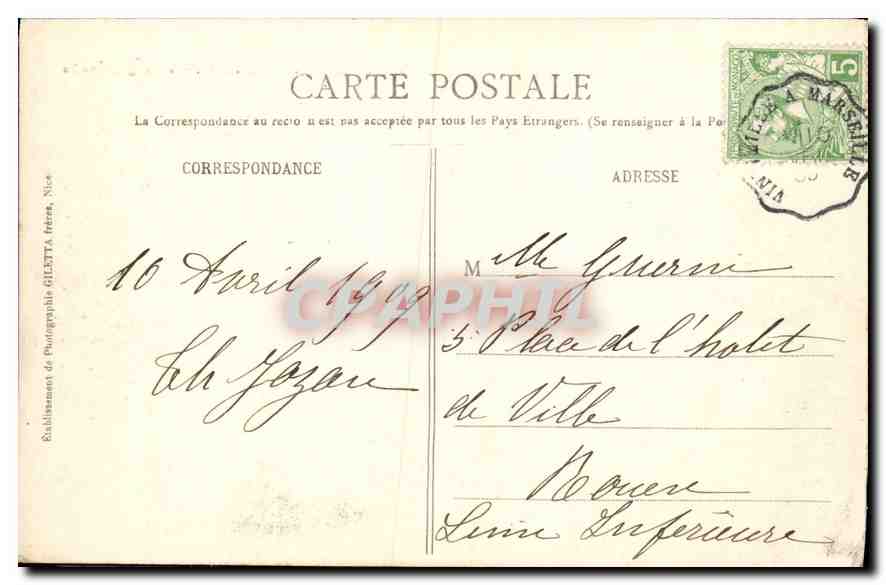 CARTE POSTALE
La Correspondance au recto n'est pas acceptée par tous les Pays Etrangers. (Se renseigner à la Po
CORRESPONDANCE
ADRESSE
10 Avril 1909
M Mlle Guerin
5 Place de l'hotel
de Ville
Rouen
Seine Inferieure
Etablissement de Photographie GILETTA frères, Nice
5
MILLE A MARSEILLE
VIN
CPAPHIL